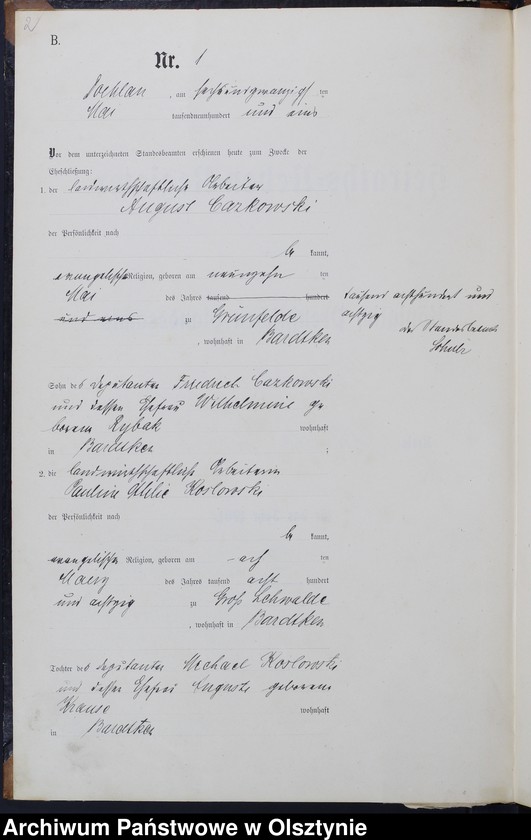 2
B.
Nr. 1
am
ten
Mai tausendneunhundert und eins
Vor dem unterzeichneten Standesbeamten erschienen heute zum Zwecke der
Eheschließung:
1. der landwirthschaftliche Arbeiter
August Czakowski
der Persönlichkeit nach
be kannt,
evangelischer Religion, geboren am neunzehn ten
Mai des Jahres tausend hundert
tausend achthundert und
und eins zu Grünfelde
achtzig
, wohnhaft in Bardtken
der Standesbeamte
Scholz
Sohn des Deputanten Friedrich Czakowski
und dessen Ehefrau Wilhelmine ge
borenen Rybak wohnhaft
in Bardtken ;
2. die landwirthschaftliche Arbeiterin
Pauline Ottilie Koslowski
der Persönlichkeit nach
be kannt,
evangelischer Religion, geboren am ach ten
Maerz des Jahres tausend acht hundert
und achtzig zu Groß Lehwalde
, wohnhaft in Bardtken
Tochter des Deputanten Michael Koslowski
und dessen Ehefrau Auguste geborenen
Krause wohnhaft
in Bardtken
Archiwum Państwowe w Olsztynie